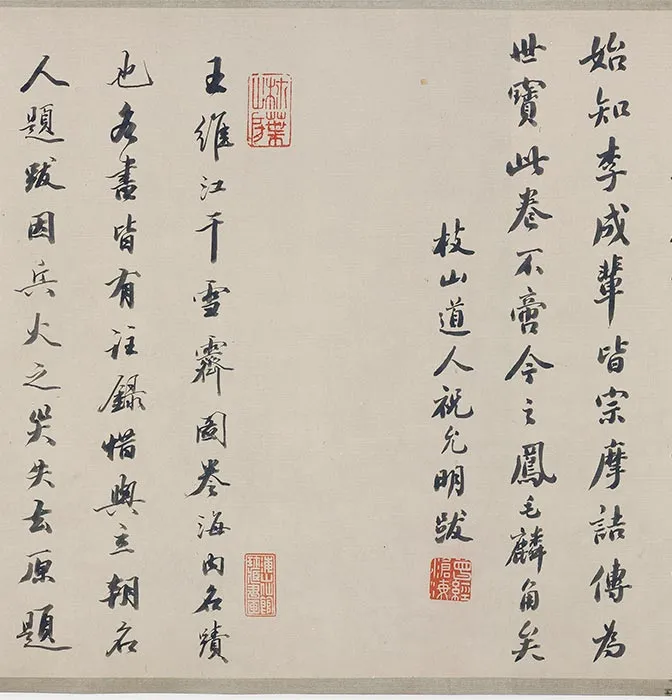 始知李成輩皆宗摩詰傳為
世寶此卷不啻今之鳳毛麟角矣
枝山道人祝允明跋
曾經滄海
王維江干雪霽圖卷海內名蹟
也各書皆有註錄惜與朝名
人題跋因兵火之災失去原題